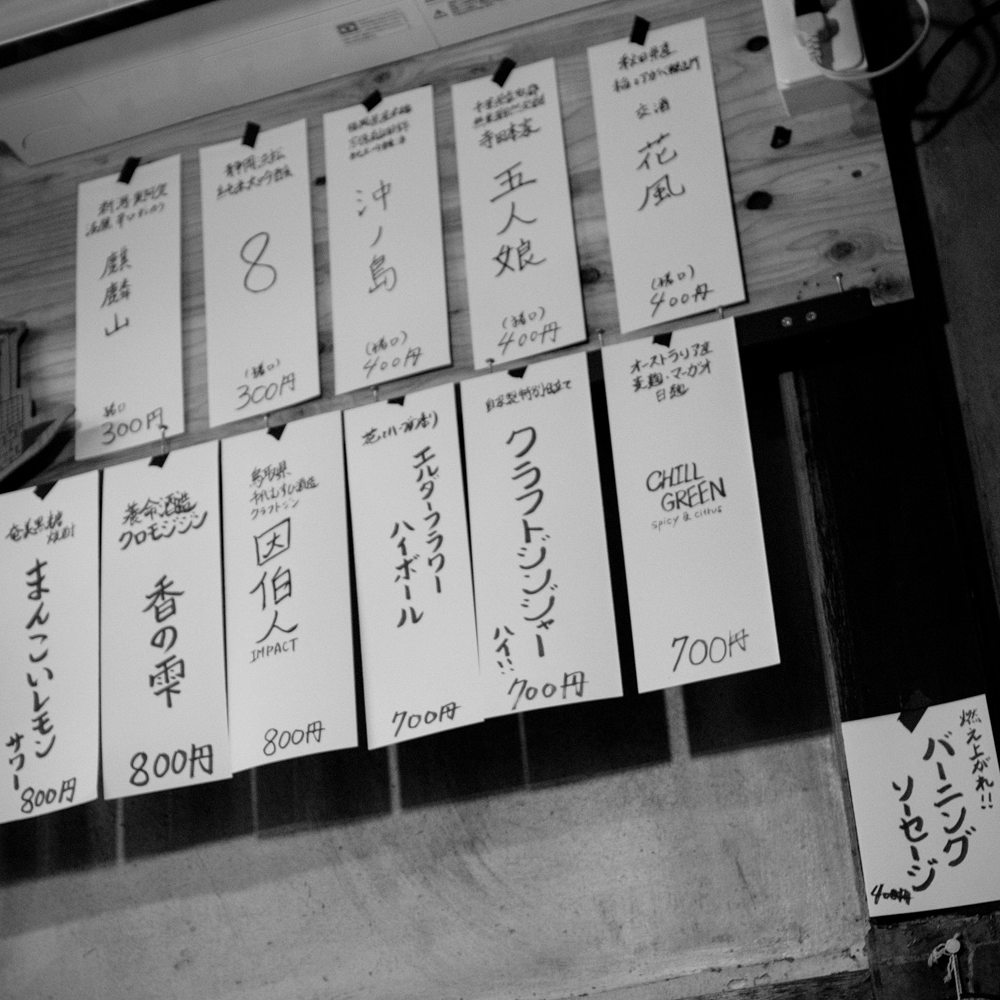 麒麟山
猪口
300円
8
(猪口)
300円
沖ノ島
(猪口)
400円
寺田本家
五人娘
(猪口)
400円
秋田県産
花風
(猪口)
400円
奄美黒糖
まんこいレモン
サワー
800円
養命酒造
クロモジジン
香の雫
800円
鳥取県
千代むすび酒造
クラフトジン
因伯人
IMPACT
800円
エルダーフラワー
ハイボール
700円
自家製特別仕立て
クラフトジンジャー
ハイ!!
700円
オーストラリア産
CHILL
GREEN
spicy & citrus
700円
燃え上がれ!!
バーニング
ソーセージ
400円